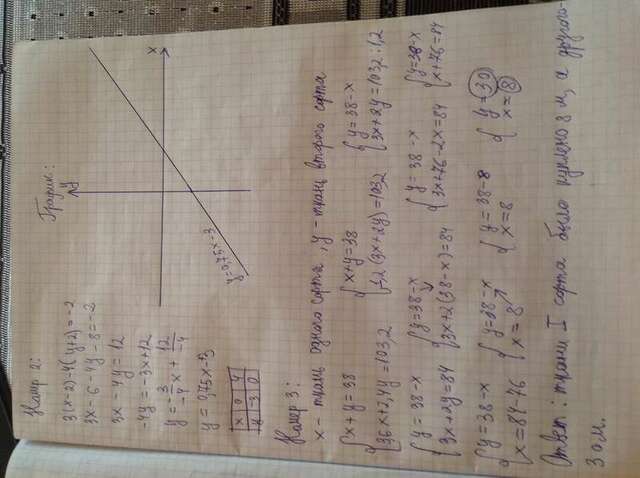 Номер 2:
3(x-2)-4(y+2)=-2
3x-6-4y-8=-2
3x-4y=12
-4y=-3x+12
y=-3/-4x+12/-4
y=0,75x-3
x 0 4
y -3 0
График:
y
x
y=0,75x-3
Номер 3:
x- ткань одного сорта, y- ткань второго сорта
{x+y=38
{36x+2,4y=103,2
{x+y=38
{1,2(3x+2y)=103,2
{y=38-x
{3x+2y=103,2:1,2
{y=38-x
{3x+2y=84
{y=38-x
{3x+2(38-x)=84
{y=38-x
{3x+76-2x=84
{y=38-x
{x+76=84
{y=38-x
{x=84-76
{y=38-x
{x=8
{y=38-8
{x=8
{y=30
{x=8
Ответ: ткани I сорта было куплено 8 м, а другого-
30 м.